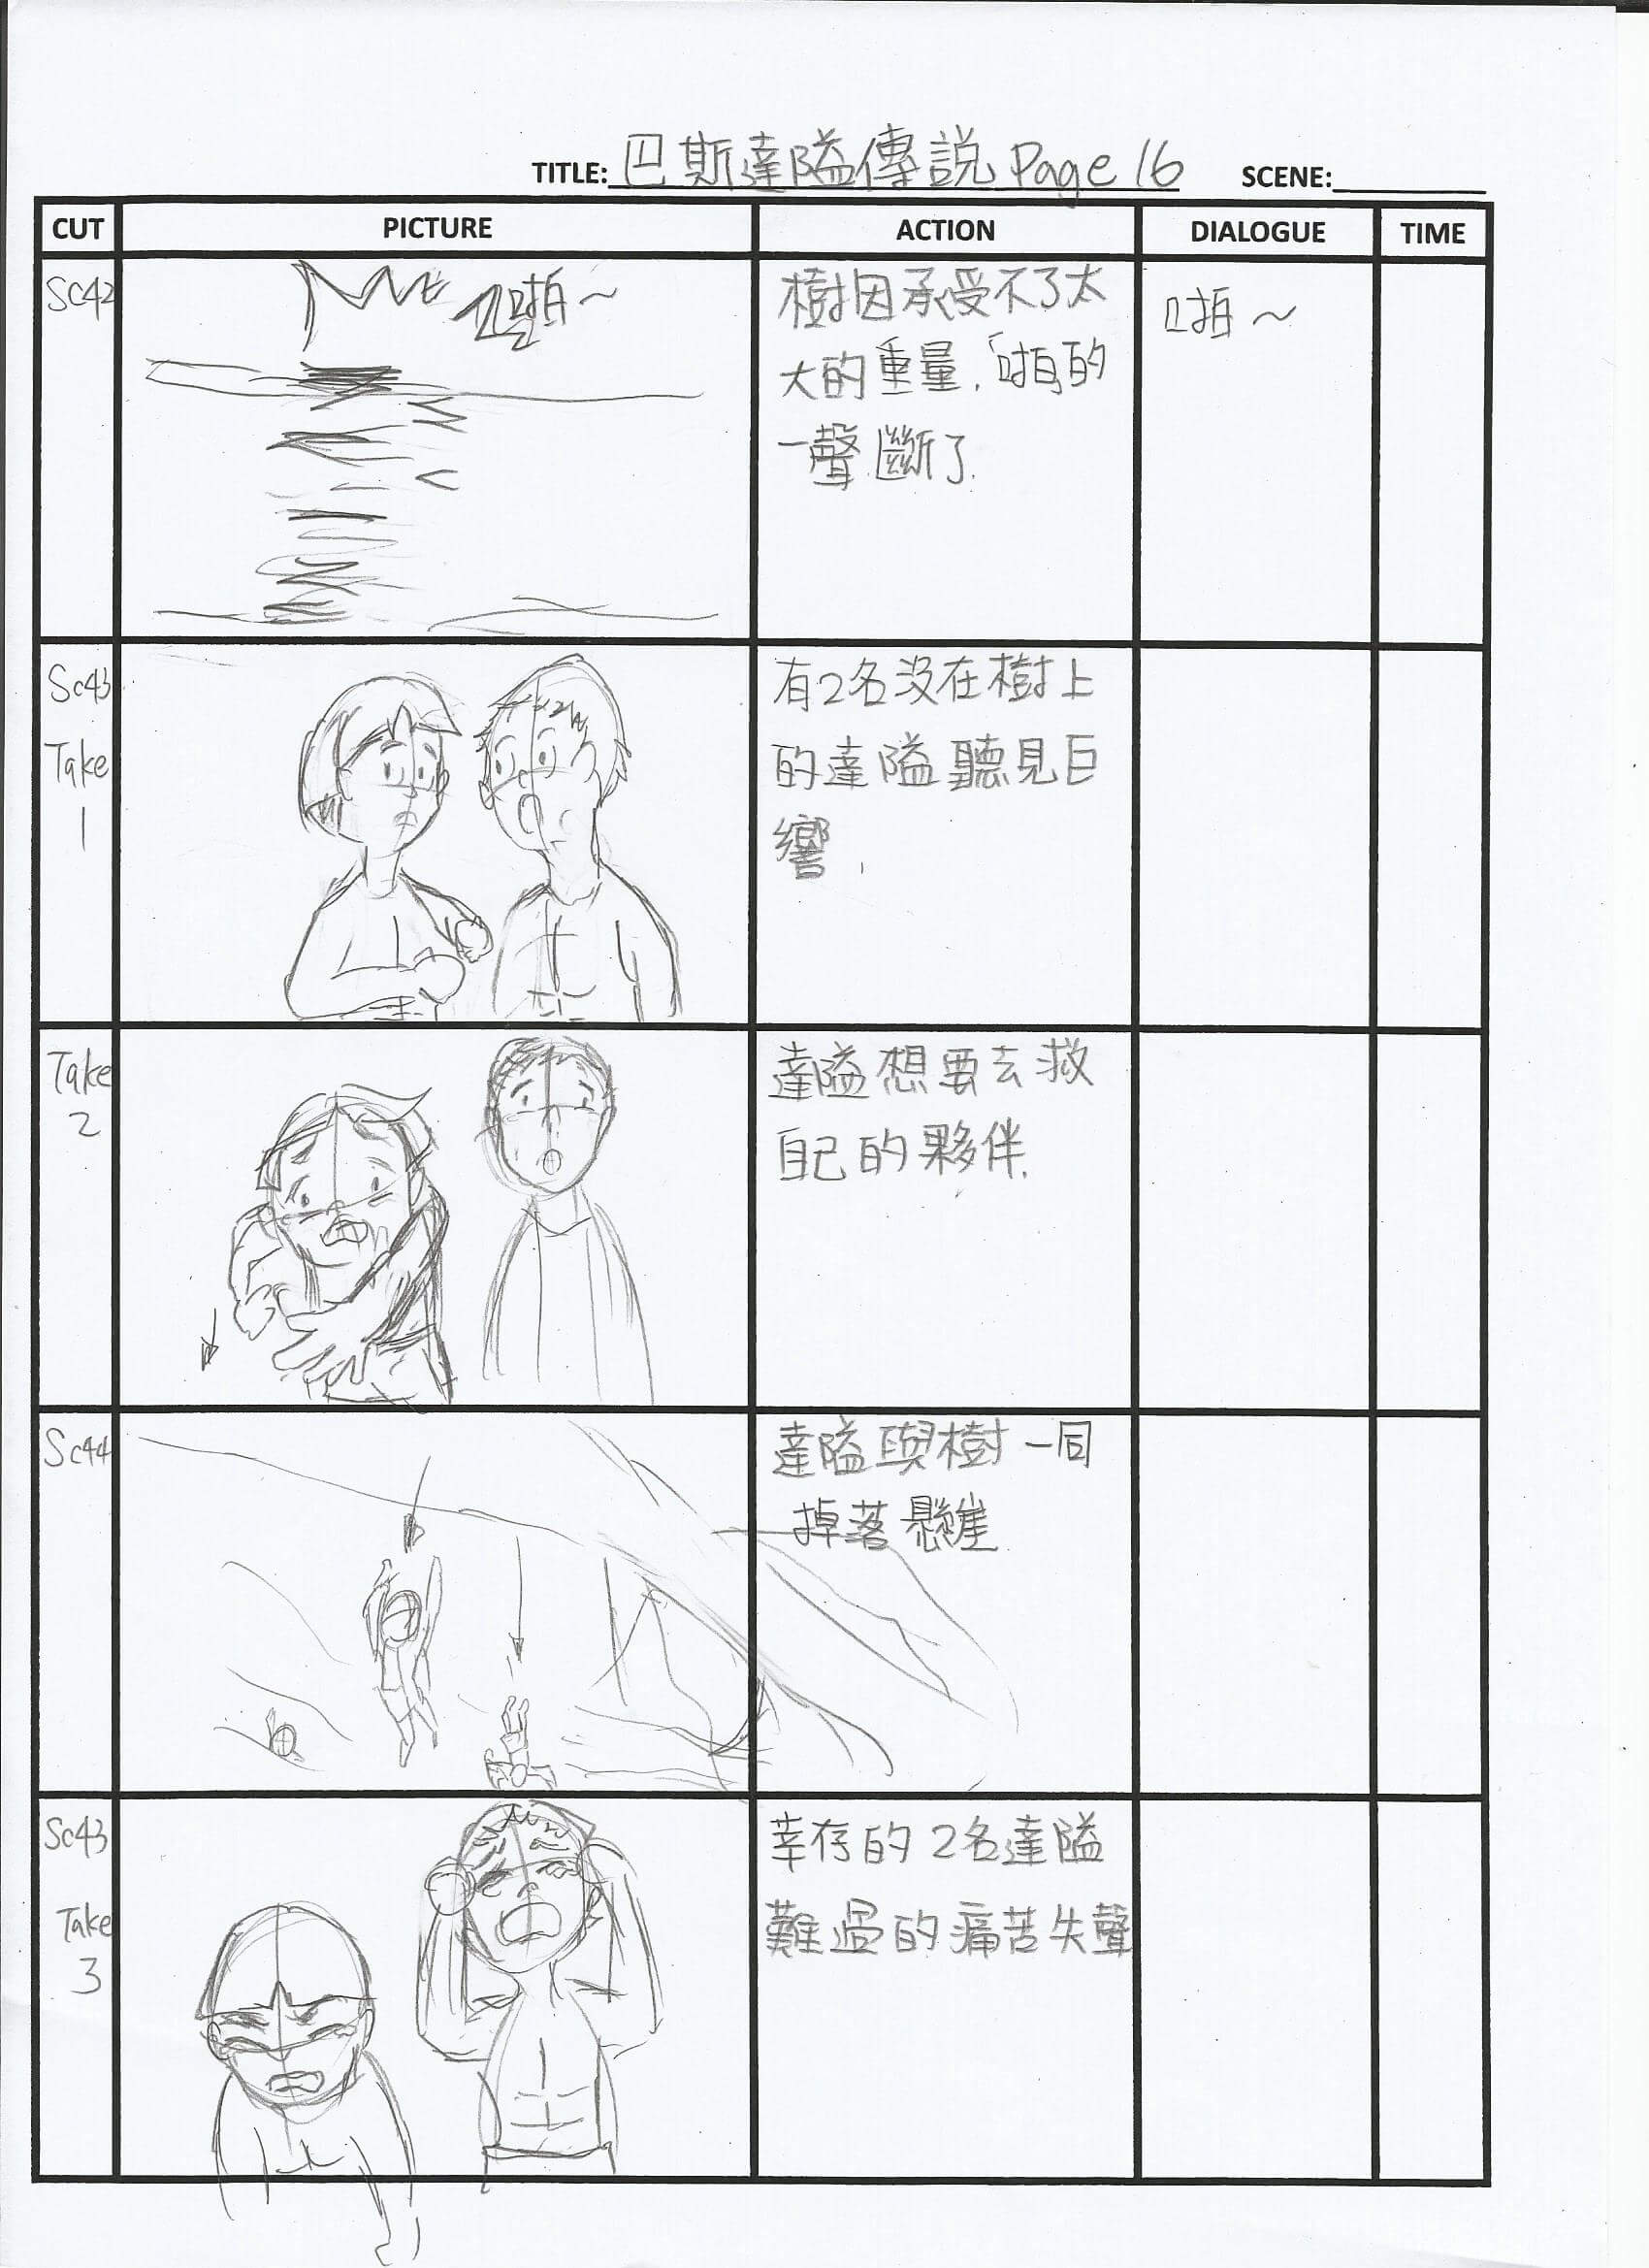 TITLE: 巴斯達隘傳說 Page 16 SCENE:
CUT PICTURE ACTION DIALOGUE TIME
Sc42
啪~
樹因承受不了太
大的重量,「啪」的
一聲斷了.
啪~
Sc43
Take
1
有2名沒在樹上
的達隘聽見巨
響.
Take
2
達隘想要去救
自己的夥伴.
Sc44
達隘與樹一同
掉落懸崖
Sc43
Take
3
幸存的2名達隘
難過的痛苦失聲